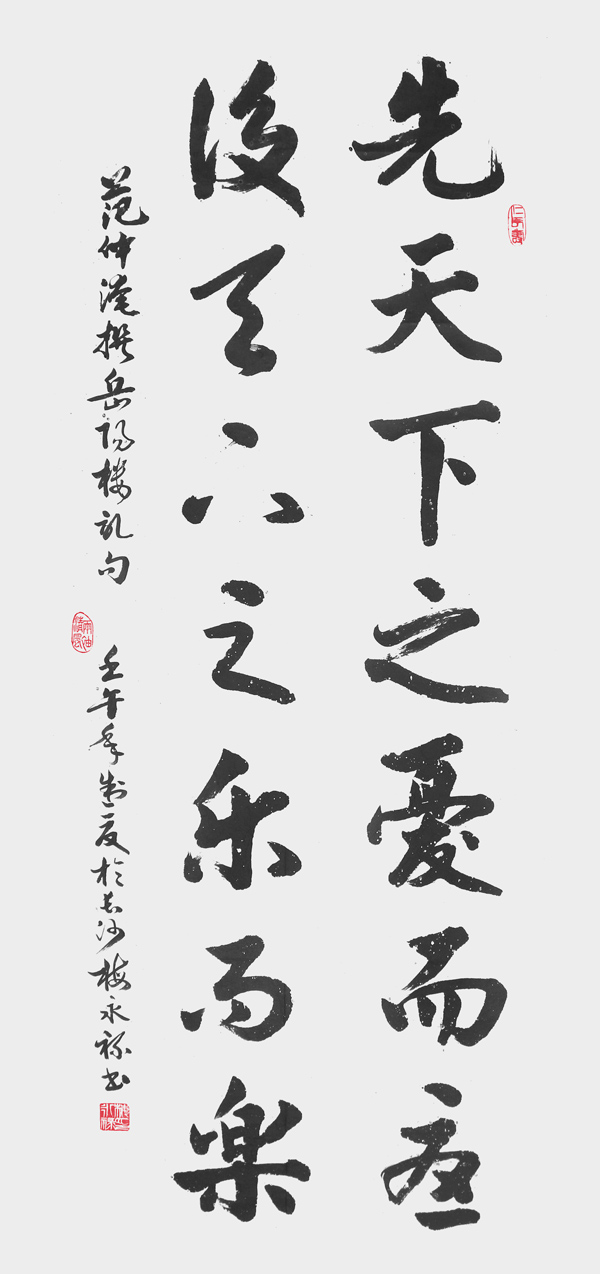 先天下之憂而憂
後天下之乐而樂
范仲淹撰岳阳楼记句
壬午年夏於长沙梅永禄书
仁者壽